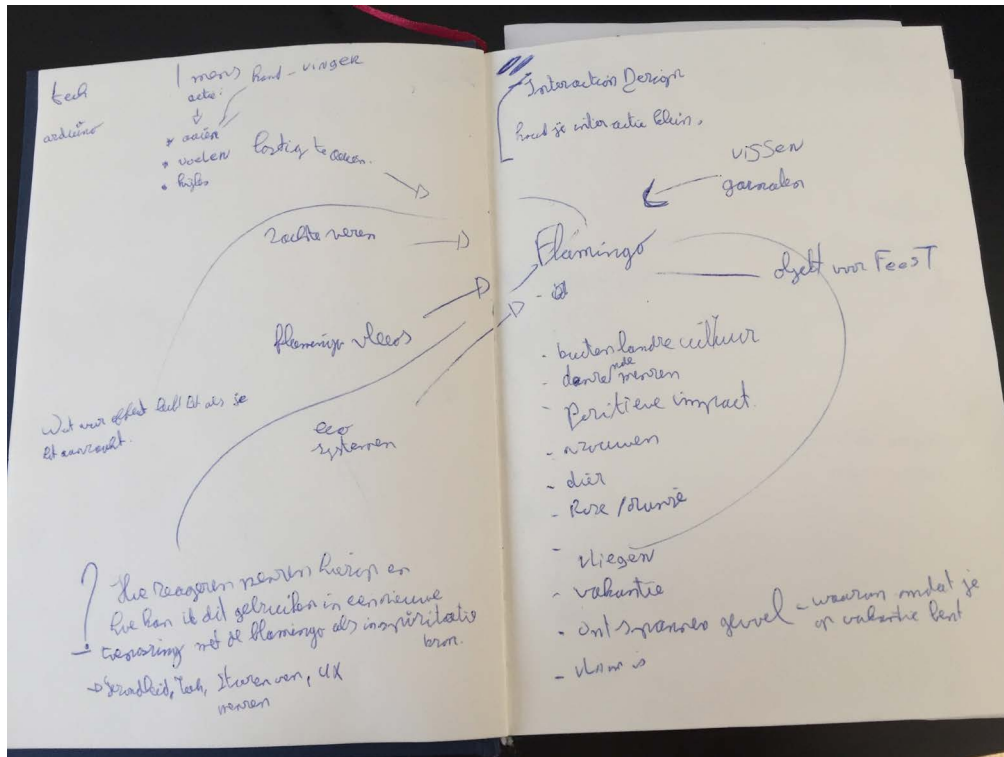 tech
arduino
1 mens
actie:
hand - VINGER
• aaien
• voelen
• kijken
lastig te aaien.
zachte veren
flamingo vlees
Wat voor effect heeft het als je
het aanraakt.
eco
systemen
? Hoe reageren mensen hierop en
hoe kan ik dit gebruiken in een nieuwe
toepassing met de flamingo als inspiritatie
bron.
→ gezondheid, Tech, sturen van, UX
mensen
Interaction Design
houd je interactie klein.
VISSEN
garnalen
Flamingo
objekt voor FeesT
- buitenlandse cultuur
- dansende mensen
- Positieve impact.
- vrouwen
- dier
- Roze / oranje
- vliegen
- vakantie
- ontspannen gevoel - waarom omdat je
op vakantie bent
-